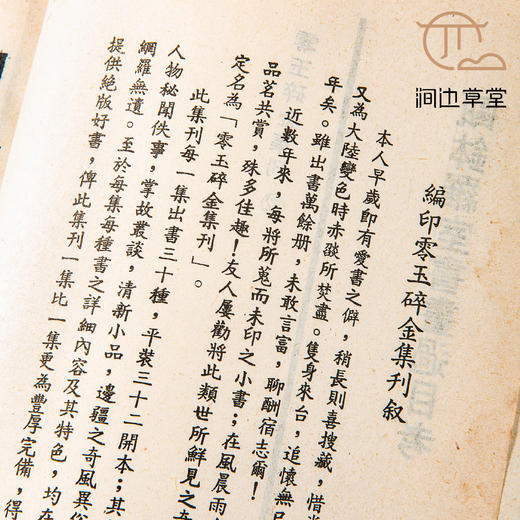 涧边草堂
編印零玉碎金集刊敘
本人早歲即有愛書之僻,稍長則喜搜藏,惜
又為大陸變色時赤燄所焚盡。隻身來台,追懷無
年矣。雖出書萬餘册,未敢言富,聊酬宿志爾!
近數年來,每將所蒐而未印之小書;在風晨雨
品茗共賞,殊多佳趣!友人屢勸將此類世所鮮見之奇
定名為「零玉碎金集刊」。
此集刊每一集出書三十種,平裝三十二開本;其
人物秘聞佚事,掌故叢談,清新小品,邊疆之奇風異俗
網羅無遺。至於每集每種書之詳細內容及其特色,均在
提供絕版好書,俾此集刊一集比一集更為豐厚完備,得